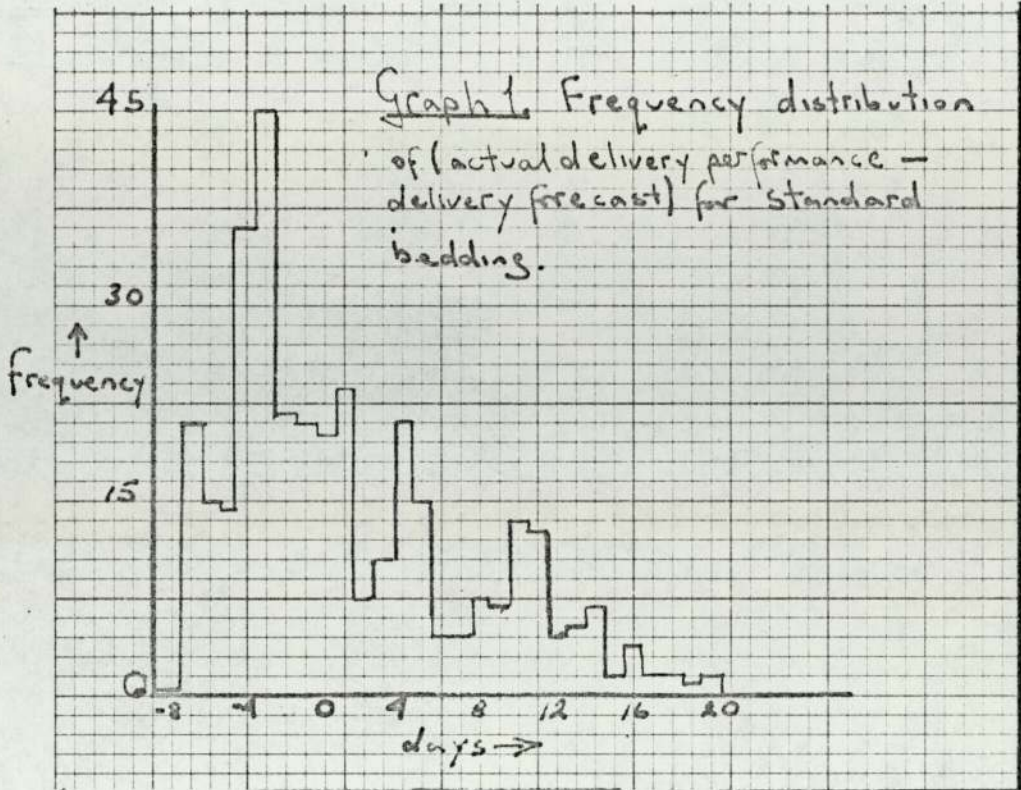 45
Graph 1. Frequency distribution
of (actual delivery performance —
delivery forecast) for standard
bedding.
30
↑
frequency
15
0
-8 -4 0 4 8 12 16 20
days →